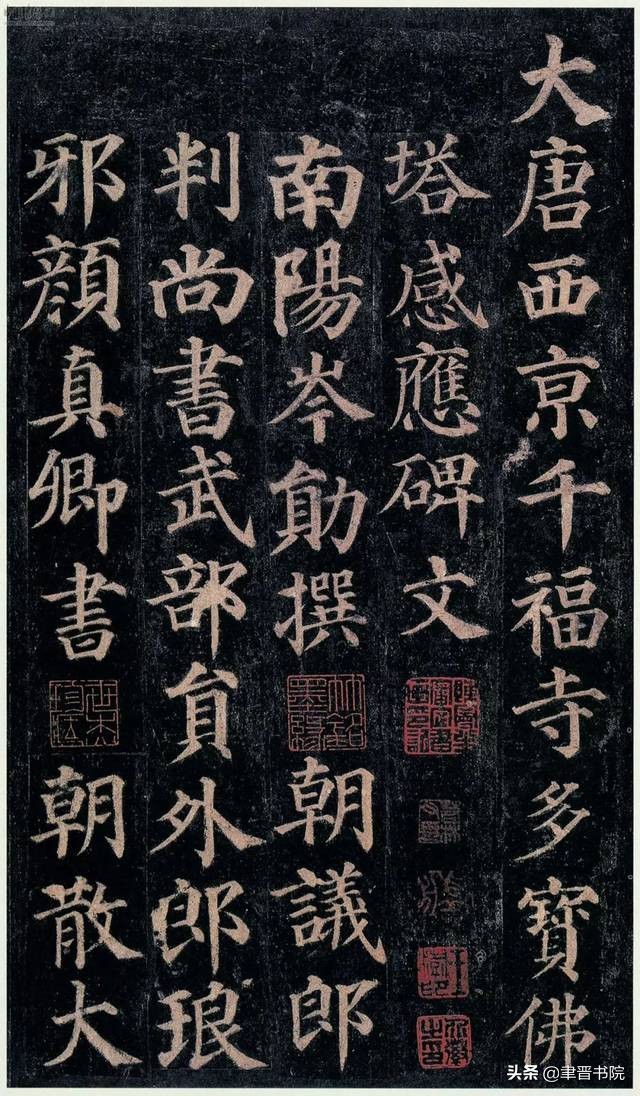 大唐西亰千福寺多寶佛
塔感應碑文
南陽岑勛撰 朝議郎
判尚書武部貟外郎琅
邪顏真卿書 朝散大
头条 @聿晋书院